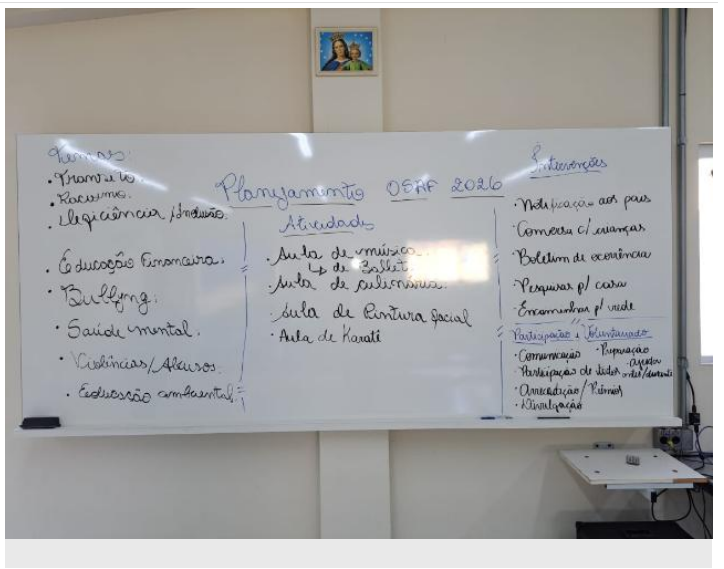 Temas:
• Trânsito.
• Racismo.
• Deficiência / Inclusão.
• Educação Financeira.
• Bullyng.
• Saúde mental.
• Violências/Abusos.
• Educação ambiental.
Planejamento OSAF 2026
Atividades
• Aula de música.
↳ de Ballet
• Aula de culinária.
• Aula de Pintura Facial
• Aula de Karatê
Intervenções
• Notificação aos pais
• Conversa c/ crianças
• Boletim de ocorrência
• Pesquisas p/ casa
• Encaminhar p/ rede
Participação e Voluntariado
• Comunicação • Preparação
• Participação de todos
antes/durante
• Arrecadação/Prêmios
• Divulgação